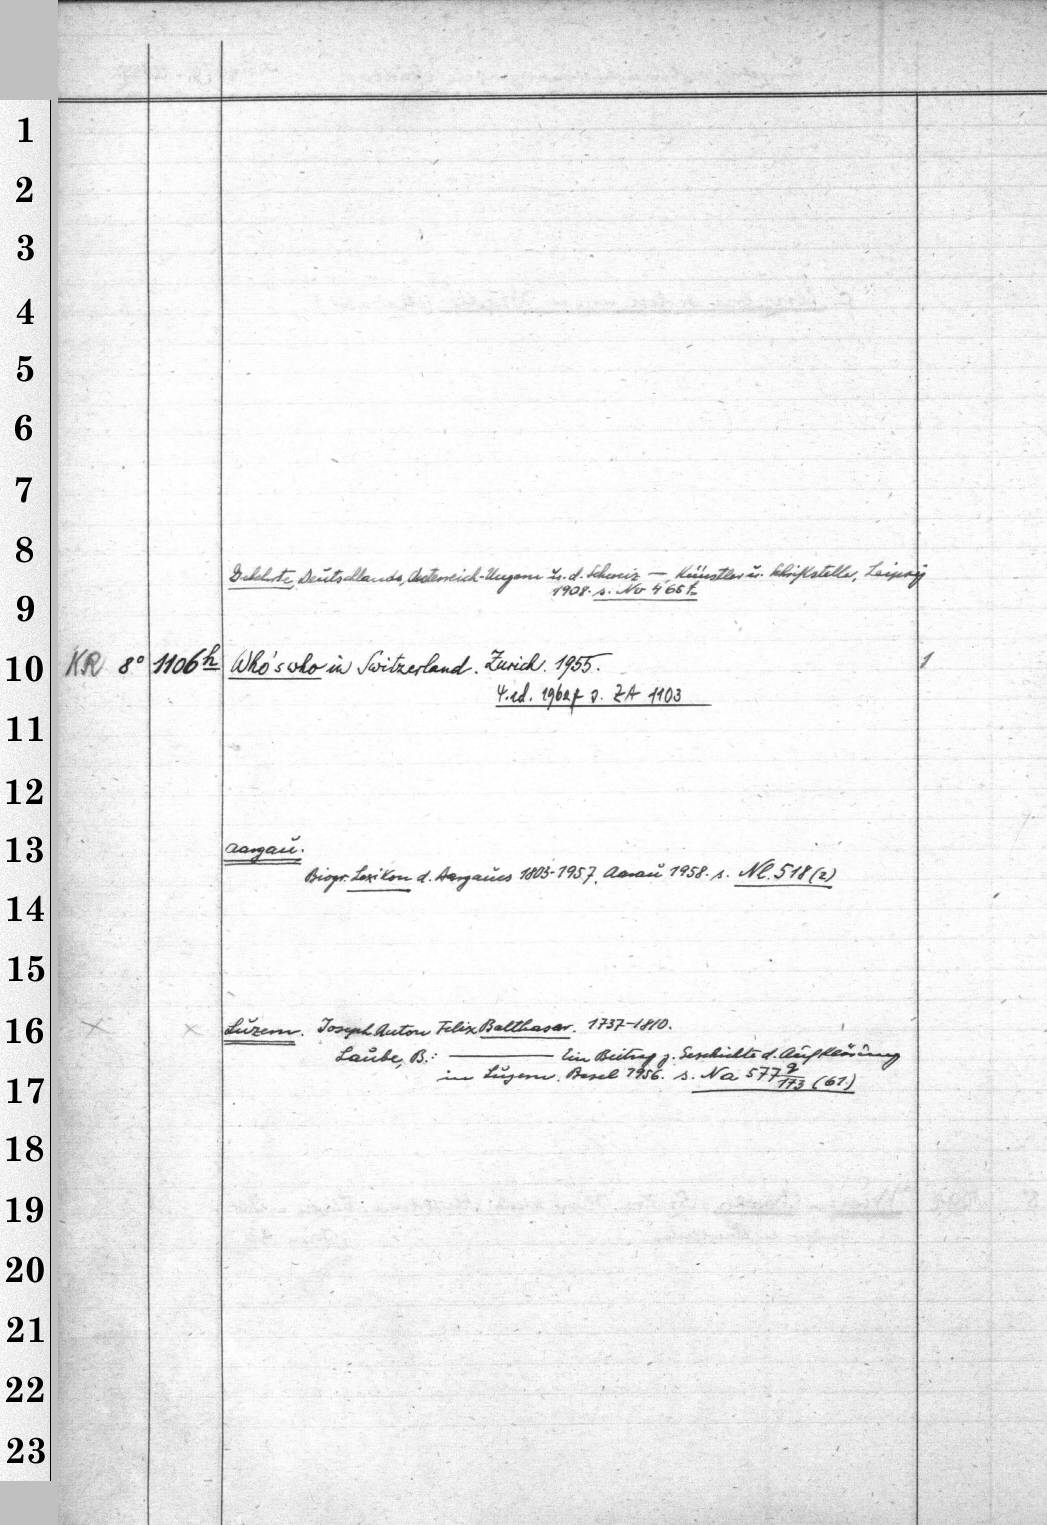 1
2
3
4
5
6
7
8
Gelehrte Deutschlands, Oesterreich-Ungarn u. d. Schweiz — Künstler u. Schriftsteller, Leipzig
9
1908. s. No 465
10
KR 8° 1106h Who's who in Switzerland. Zürich. 1955. 1
4. ed. 1962 s. ZA 1103
11
12
13
Aargau.
Biogr. Lexikon d. Aargaues 1803-1957. Aarau 1958. s. Nl. 518 (2)
14
15
16
× × Luzern. Joseph Anton Felix Balthasar. 1737-1810.
Laube, B.: ——— Ein Beitrag z. Geschichte d. Aufklärung
17
in Luzern. Basel 1956. s. Na 577 g/173 (61.)
18
19
20
21
22
23